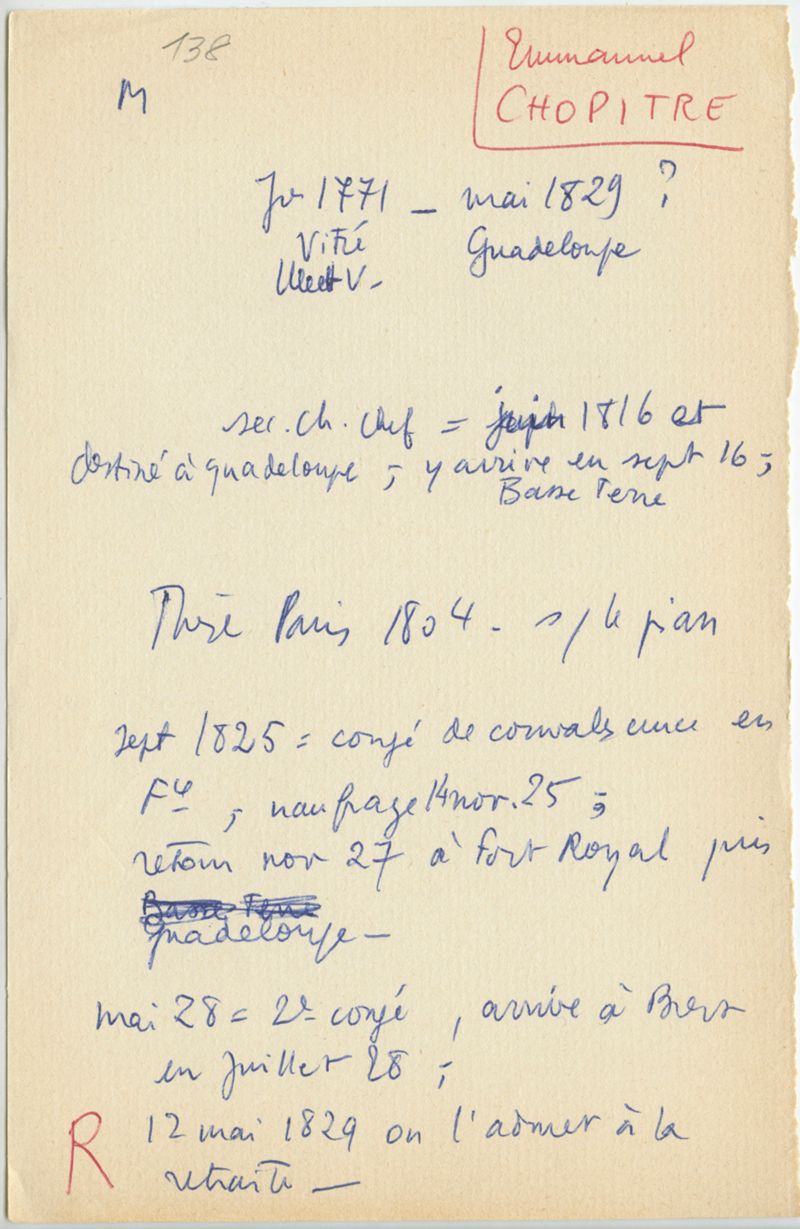 138
M
Emmanuel
CHOPITRE
Jr 1771 – mai 1829 ?
Vitré Guadeloupe
Ille et V –
sec. Ch. chef = juin 1816 et
destiné à guadeloupe ; y arrive en sept 16 ;
Basse Terre
Thèse Paris 1804 – s/ le pian
sept 1825 = congé de convalescence en
Fce ; naufrage 14 nov. 25 ;
retour nov 27 à Fort Royal puis
Basse Terre
guadeloupe –
mai 28 = 2e congé , arrive à Brest
en juillet 28 ;
R 12 mai 1829 on l'admet à la
retraite –